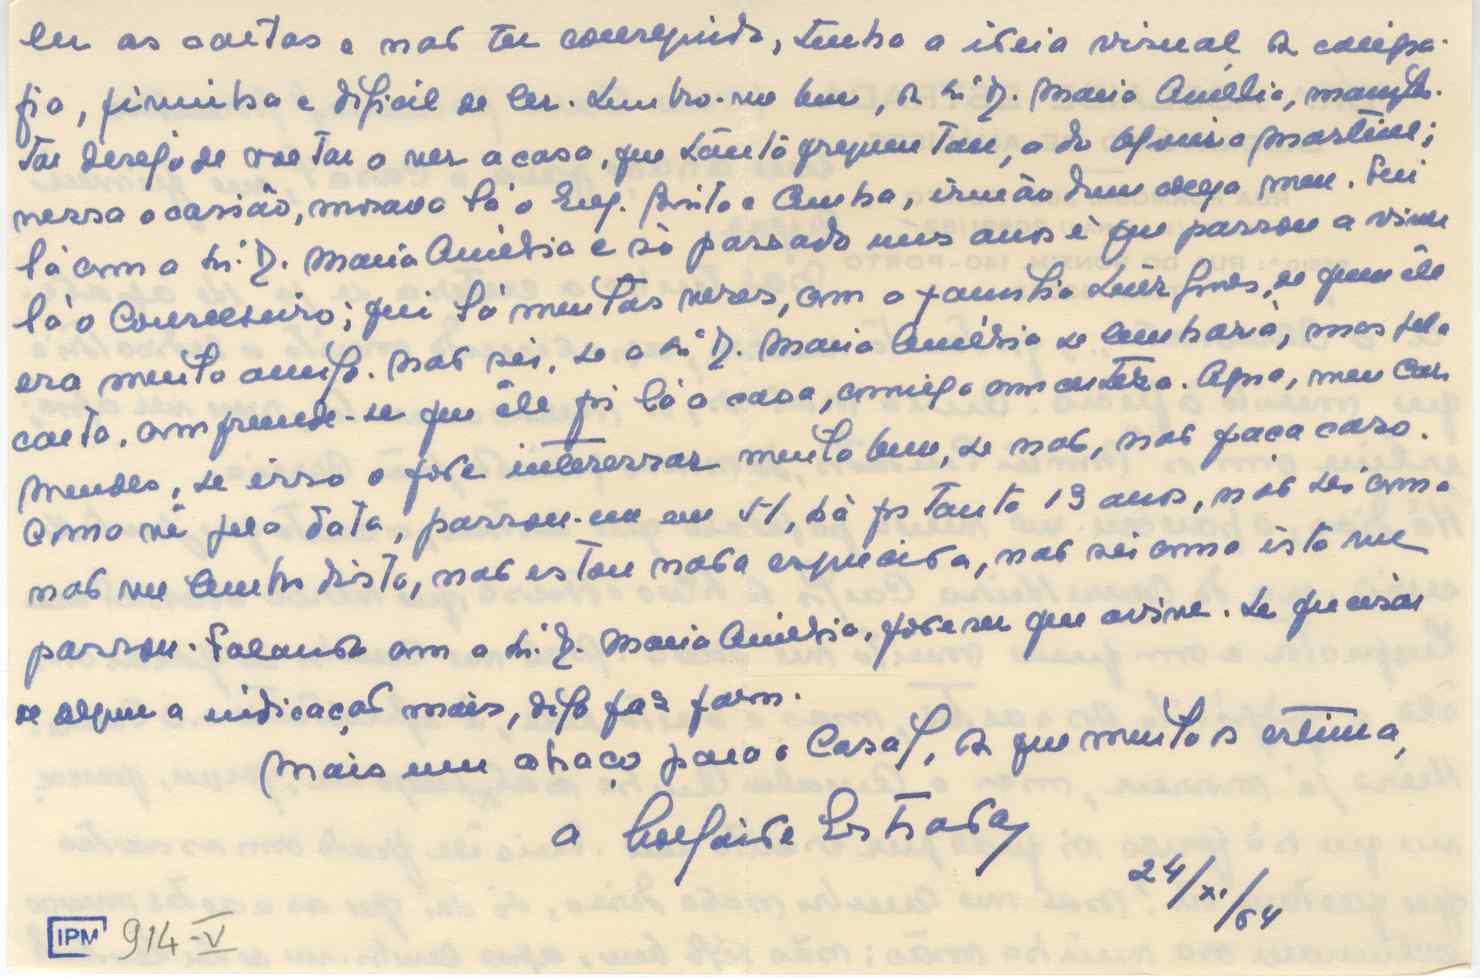 ler as cartas e não ter conseguido, tenho a ideia visual da caligra-
fia, fininha e dificil de ler. Lembro-me bem, da Sr.ª D. Maria Amélia, manifes-
tar desejo de voltar a ver a casa, que tanto frequentou, a do Oliveira Martins;
nessa ocasião, morava lá o Eng. Pinto e Cunha, irmão dum colega meu. Fui
lá com a Sr.ª D. Maria Amélia e só passado uns anos é que passou a viver
lá o Conselheiro; fui lá muitas vezes, com a familia Luiz Gomes, de quem êle
era muito amigo. Não sei, se a Sr.ª D. Maria Amélia se lembrará, mas pela
carta, comprende-se que êle foi lá a casa, comigo com certeza. Agora, meu caro
Mendes, se isso o pode interessar muito bem, se não, não faça caso.
Como vê pela data, passou-se em 51, há portanto 13 anos, não sei como
não me lembro disto, não estou nada esquecida, não sei como isto me
passou. Falando com a Sr.ª D. Maria Amélia, pode ser que avive. Se precisar
de alguma indicação mais, diga faz favor.
Mais um abraço para o Casal, da que muito os estima,
a Estrada
24/XI/64
IPM 914-V